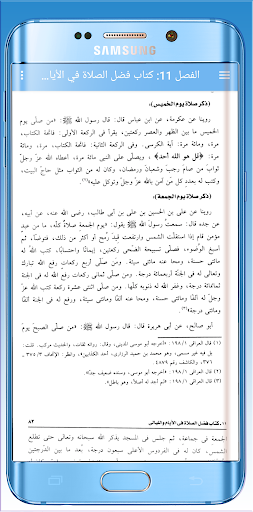 SAMSUNG
الفصل 11: كتاب فضل الصلاة في الأيا...
(ذكر صلاة يوم الخميس):
روينا عن عكرمة، عن ابن عباس قال: قال رسول الله ﷺ: «من صلّى يوم
الخميس ما بين الظهر والعصر ركعتين، يقرأ في الركعة الأولى: فاتحة الكتاب،
مرة، ومائة مرة: آية الكرسي. وفي الركعة الثانية: فاتحة الكتاب، مرة، ومائة
مرة: ﴿قل هو الله أحد﴾، ويصلّي على النبي مائة مرة، أعطاه الله عزّ وجلّ
ثواب من صام رجب وشعبان ورمضان، وكان له من الثواب مثل حاجّ البيت،
وكتب له بعدد كل من آمن بالله عزّ وجلّ وتوكل عليه»
(ذكر صلاة يوم الجمعة):
روينا عن علي بن الحسين بن علي بن أبي طالب، رضي الله عنه، عن أبيه،
عن جده قال: سمعت رسول الله ﷺ يقول: «يوم الجمعة صلاة كلّه، ما من عبد
مؤمن قام إذا استقلّت الشمس وارتفعت قيد رمح أو أكثر من ذلك، فتوضّأ، ثم
أسبغ الوضوء، فصلّى سبحة الضحى ركعتين، إيماناً واحتساباً، كتب الله له
مائتي حسنة، ومحا عنه مائتي سيئة. ومن صلّى أربع ركعات رفع الله تبارك
وتعالى له في الجنة أربعمائة درجة. ومن صلّى ثماني ركعات رفع الله له في
الجنة ثمانمائة درجة، وغفر الله له ذنوبه كلّها. ومن صلّى اثنتي عشرة ركعة كتب الله له
ألفاً ومائتي حسنة، ومحا عنه ألفاً ومائتي سيئة، ورفع له في الجنة ألفاً ومائتي
درجة»
أبو صالح، عن أبي هريرة قال: قال رسول الله ﷺ: «من صلّى الصبح يومَ
(١) قال العراقي ١٩٨/١:
(٢) قال العراقي ١٩٨/١:
(٣) قال العراقي ١٩٨/١:
١١. كتاب فضل الصلاة في الأيام والليالي ٨٣
الجمعة في جماعة، ثم جلس في المسجد يذكر الله سبحانه وتعالى حتى تطلع
الشمس، كان له في الفردوس الأعلى سبعون درجة، بعد ما بين الدرجتين